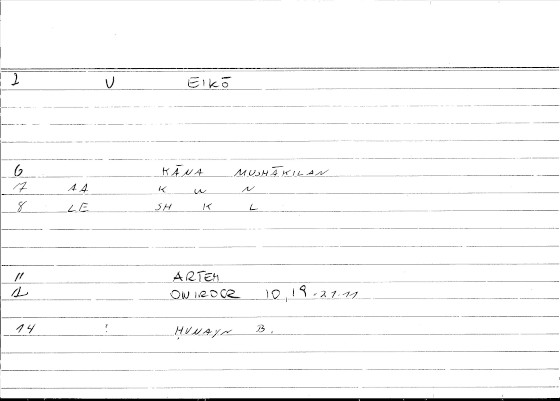 1 V EIKŌ
6 KĀNA MUSHĀKILAN
7 AA K W N
8 LE SH K L
11 ARTEM
12 ONIROCR 10,19-21.11
14 ! ḤUNAYN B.